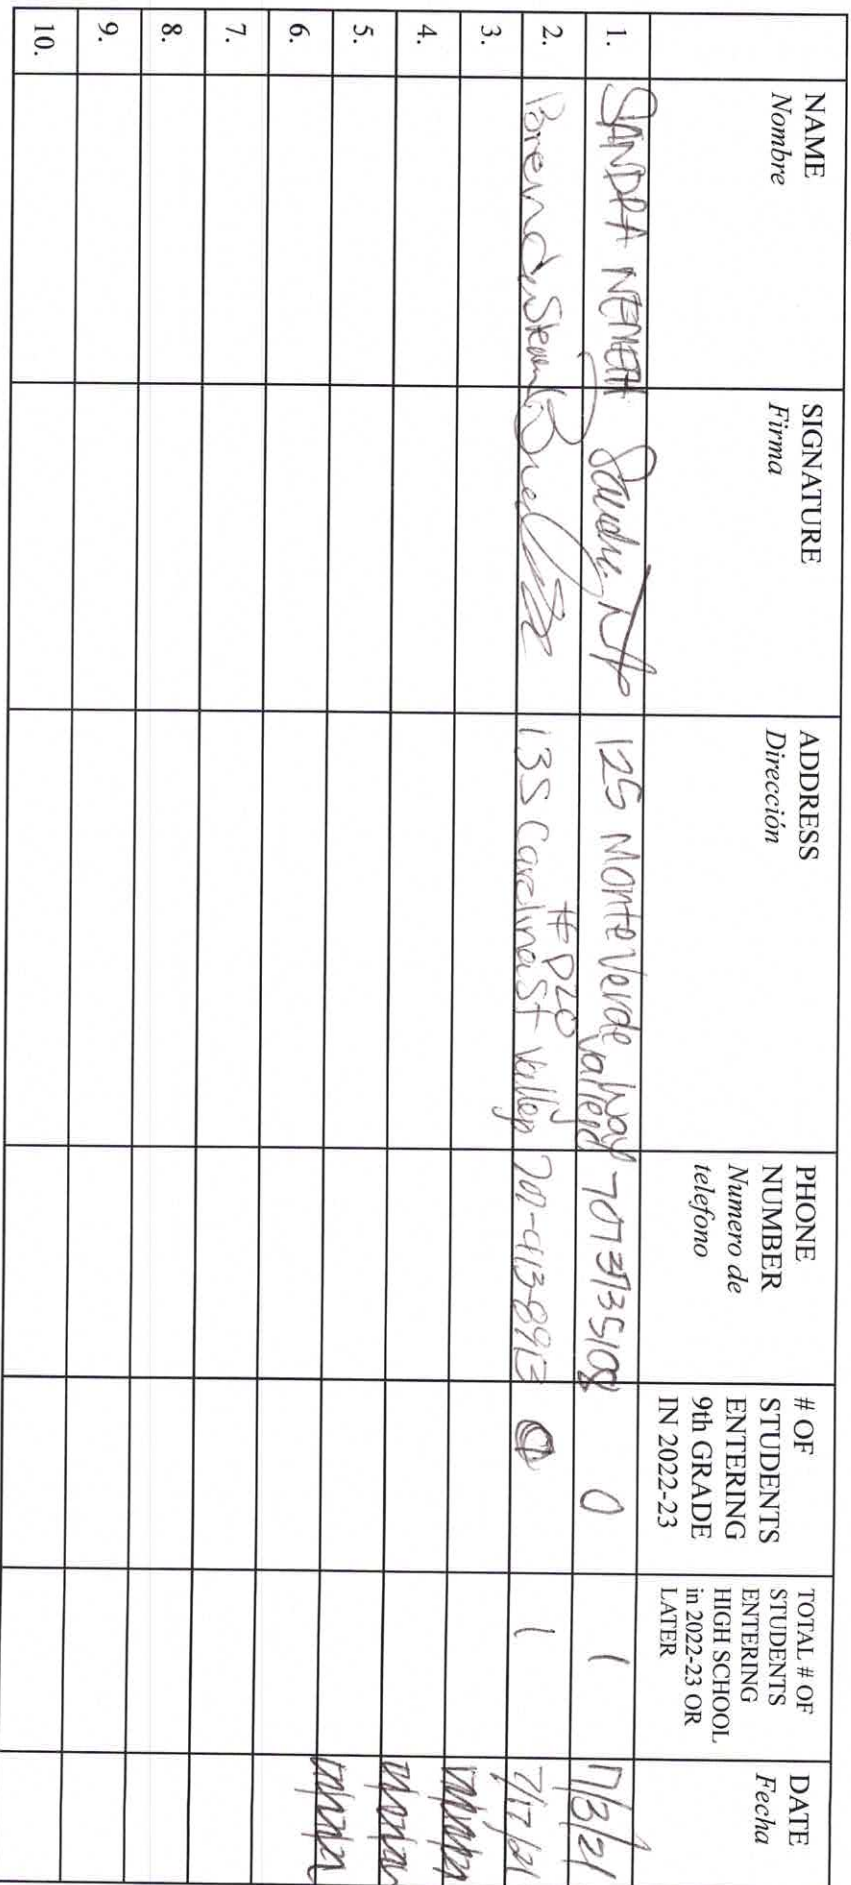 NAME
Nombre
SIGNATURE
Firma
ADDRESS
Dirección
PHONE
NUMBER
Numero de
telefono
# OF
STUDENTS
ENTERING
9th GRADE
IN 2022-23
TOTAL # OF
STUDENTS
ENTERING
HIGH SCHOOL
in 2022-23 OR
LATER
DATE
Fecha
1. SANDRA NEMETH Sandra 125 Monte Verde Way Vallejo 0 1
2. Brenda #D20 135 Carolina St Vallejo 707-413-8913 1 7/17/21
3.
4.
5.
6.
7.
8.
9.
10.